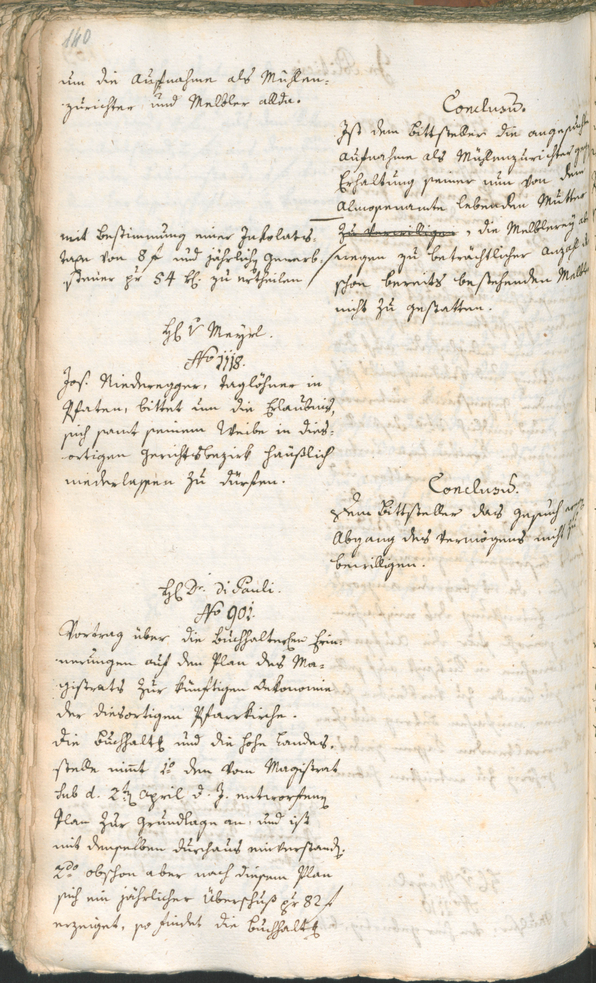 140
um die Aufnahme als Mühlen-
zurichter und Melbler allda.
Conclusum.
Ist dem Bittsteller die angesuchte
Aufnahme als Mühlenzurichter gegen
Erhaltung seiner nun von dem
Almosenamte lebenden Mutter
zu bewilligen, die Melblerey
wegen zu beträchtlicher Anzahl
schon bereits bestehenden Melbler
nicht zu gestatten.
mit Bestimmung einer Inkolats-
taxe von 8 f und jährlich Gewerb-
steuer pr 54 kr. zu ertheilen
H v Meyrl.
No 1118.
Jos. Niederegger, Taglöhner in
Pfaten, bittet um die Erlaubniß,
sich samt seinem Weibe in dies-
ortigen Gerichtsbezirk häußlich
niederlassen zu dürfen.
Conclusum.
Dem Bittsteller das Gesuch
Abgang des Vermögens nicht zu
bewilligen.
H Dr. Di Pauli.
No 901.
Vortrag über die Buchhalterischen Erin-
nerungen auf den Plan des Ma-
gistrats zur künftigen Oekonomie
der diesortigen Pfarrkirche.
Die Buchhaltg und die hohe Landes-
stelle nimt 1o den vom Magistrat
sub d. 2t April d. J. entworfenen
Plan zur Grundlage an, und ist
mit denselben durchaus einverstand.
2do obschon aber nach diesem Plan
sich ein jährlicher Überschuß pr 82 f
erzeiget, so findet die Buchhaltg